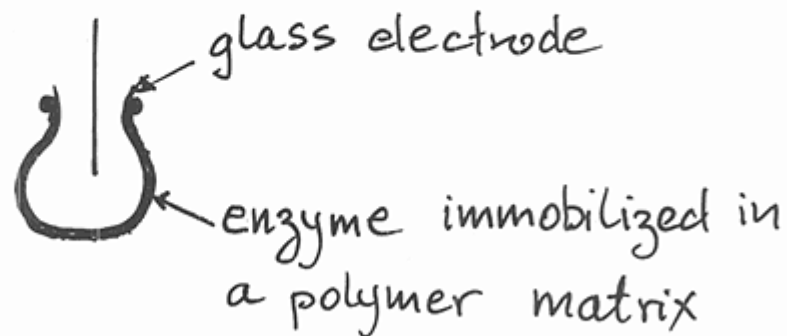 glass electrode
enzyme immobilized in
a polymer matrix